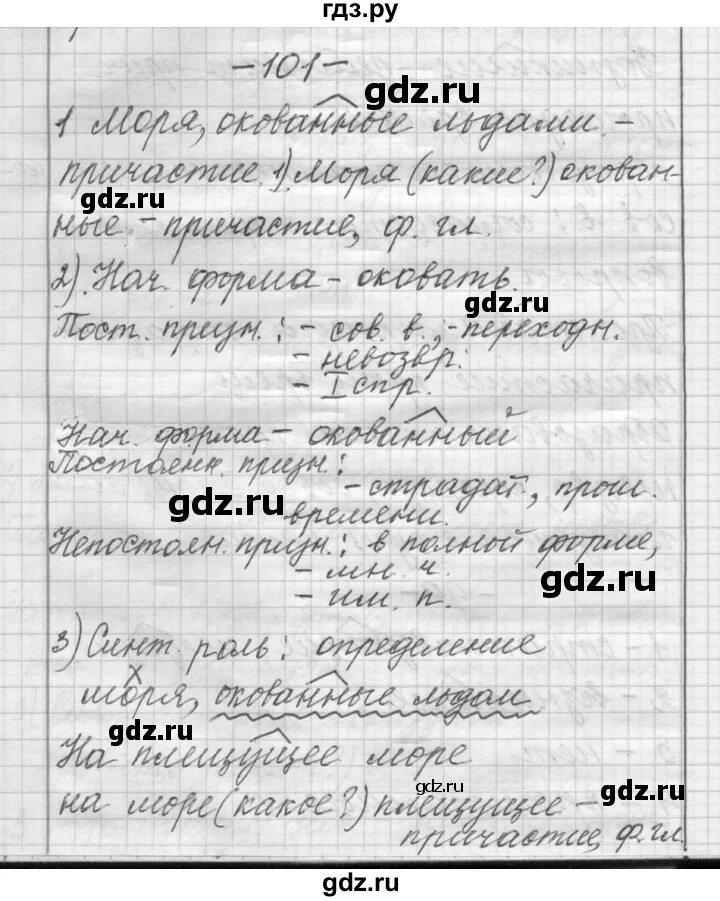 гдз.ру
-101-
gdz.ru
1 Моря, окованные льдами. -
причастие. 1). Моря (какие?) окован-
gdz.ru
ные - причастие, ф. гл.
2). Нач. форма - оковать.
gdz.ru
Пост. призн.: - сов. в., - переходн.
- невозвр.
- I спр.
Нач. форма - окованный
Постоянн. призн.:
gdz.ru
- страдат., прош.
времени.
Непостоян. призн.: в полной форме,
- мн. ч.
gdz.ru
- им. п.
3) Синт. роль: определение
х
моря, окованные льдам
gdz.ru
На плещущее море
gdz.ru
на море (какое?) плещущее -
причастие, ф. гл.
gdz.ru